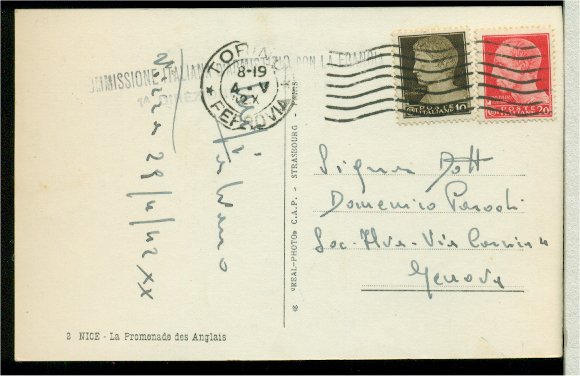 COMMISSIONE ITALIANA D'ARMISTIZIO CON LA FRANCIA
TORINO
8-19
4-V
42 X
FERROVIA
POSTE
ITALIANE 10
POSTE
ITALIANE 20
Nizza 29/4/42 XX
Signor Dott
Domenico Parodi
Soc. Ilva - Via
Genova
"REAL-PHOTO" C.A.P. - STRASBOURG - PARIS
2 NICE - La Promenade des Anglais